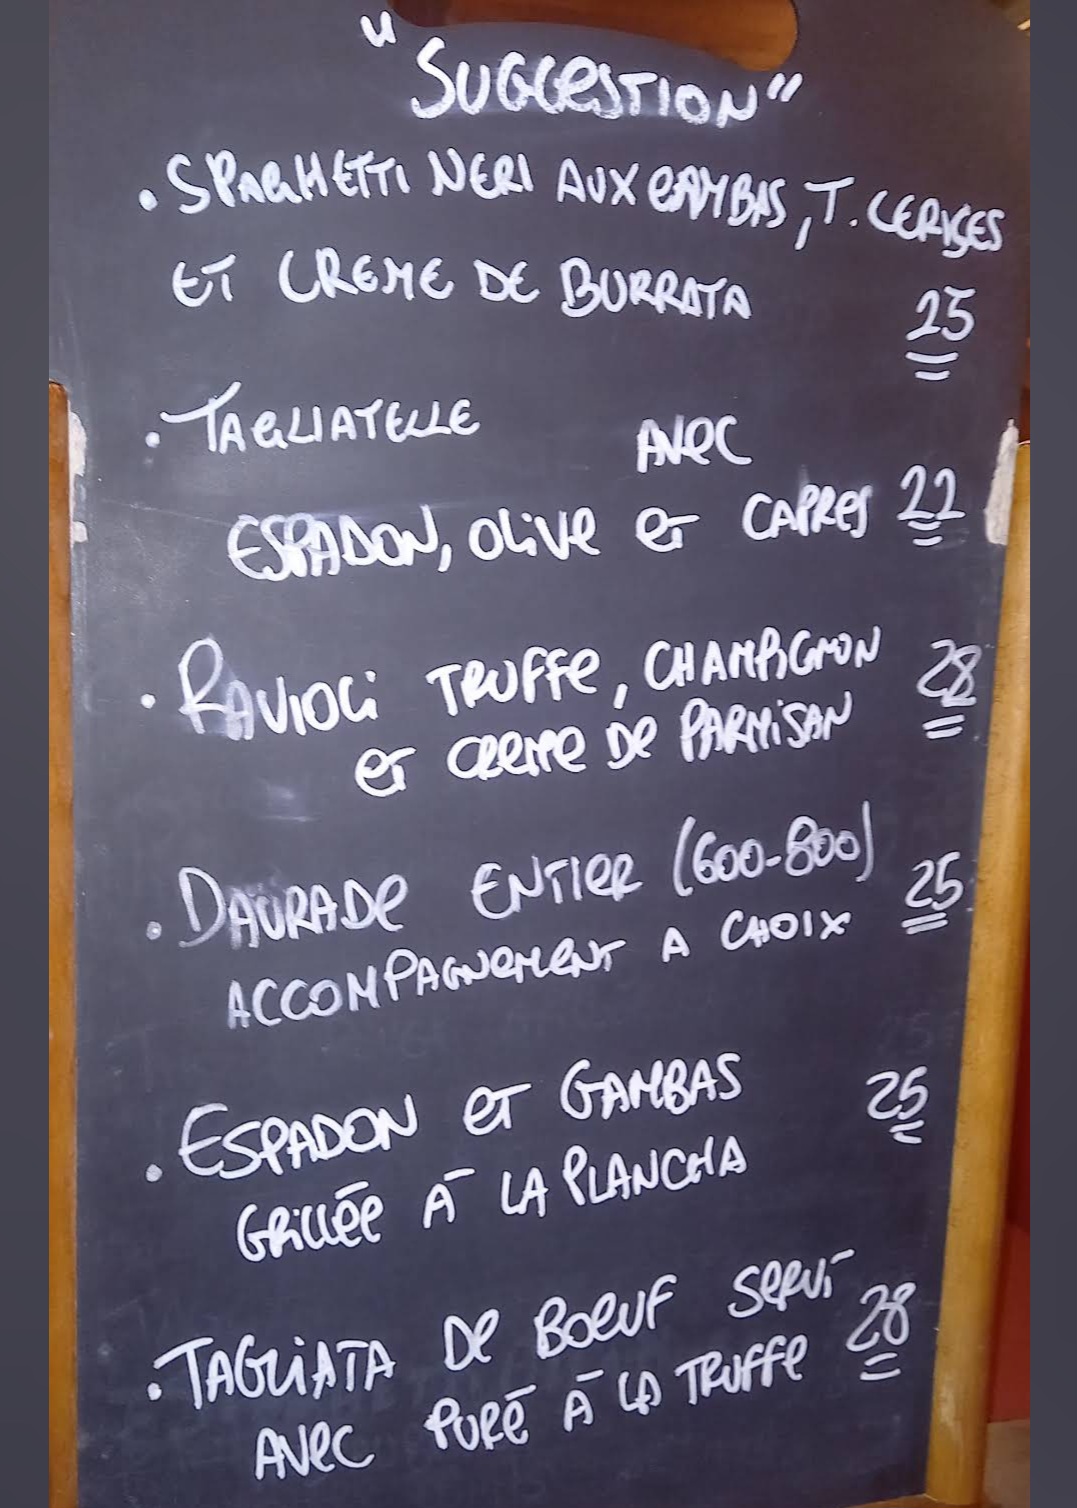 "SUGGESTION"
• SPAGHETTI NERI AUX GAMBAS, T. CERISES
ET CREME DE BURRATA 25
• TAGLIATELLE AVEC
ESPADON, OLIVE ET CAPRES 22
• RAVIOLI TRUFFE, CHAMPIGNON 28
ET CREME DE PARMISAN
• DAURADE ENTIER (600-800) 25
ACCOMPAGNEMENT A CHOIX
• ESPADON ET GAMBAS 25
GRILLÉE À LA PLANCHA
• TAGLIATA DE BOEUF SERVI 28
AVEC PURÉ À LA TRUFFE